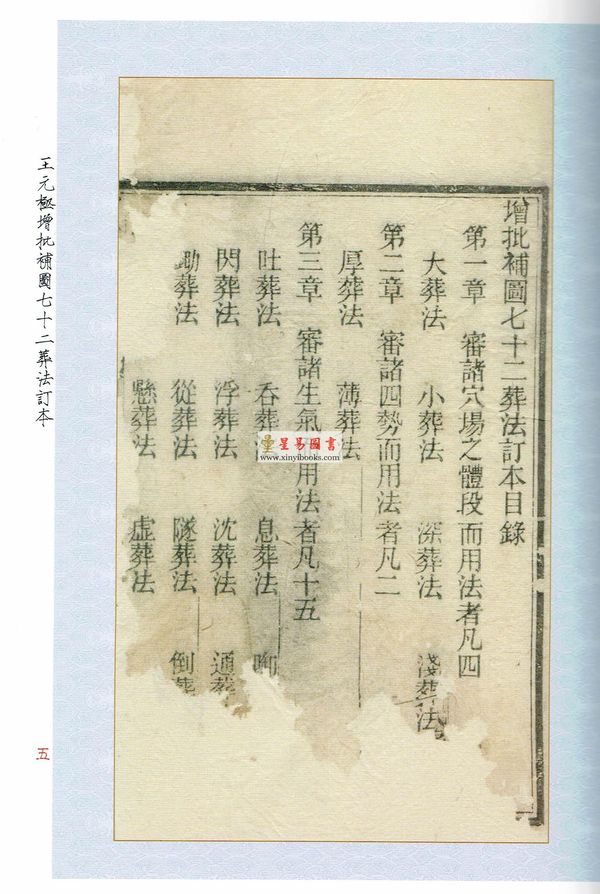 增批補圖七十二葬法訂本目錄
第一章 審諸穴場之體段而用法者凡四
大葬法 小葬法 深葬法 淺葬法
第二章 審諸四勢而用法者凡二
厚葬法 薄葬法
第三章 審諸生氣 用法者凡十五
吐葬法 吞葬 息葬法
閃葬法 浮葬法 沈葬法 通葬
鋤葬法 從葬法 隧葬法 倒葬
懸葬法 虛葬法
星易圖書
www.xinyibooks.com
王元極增批補圖七十二葬法訂本
五